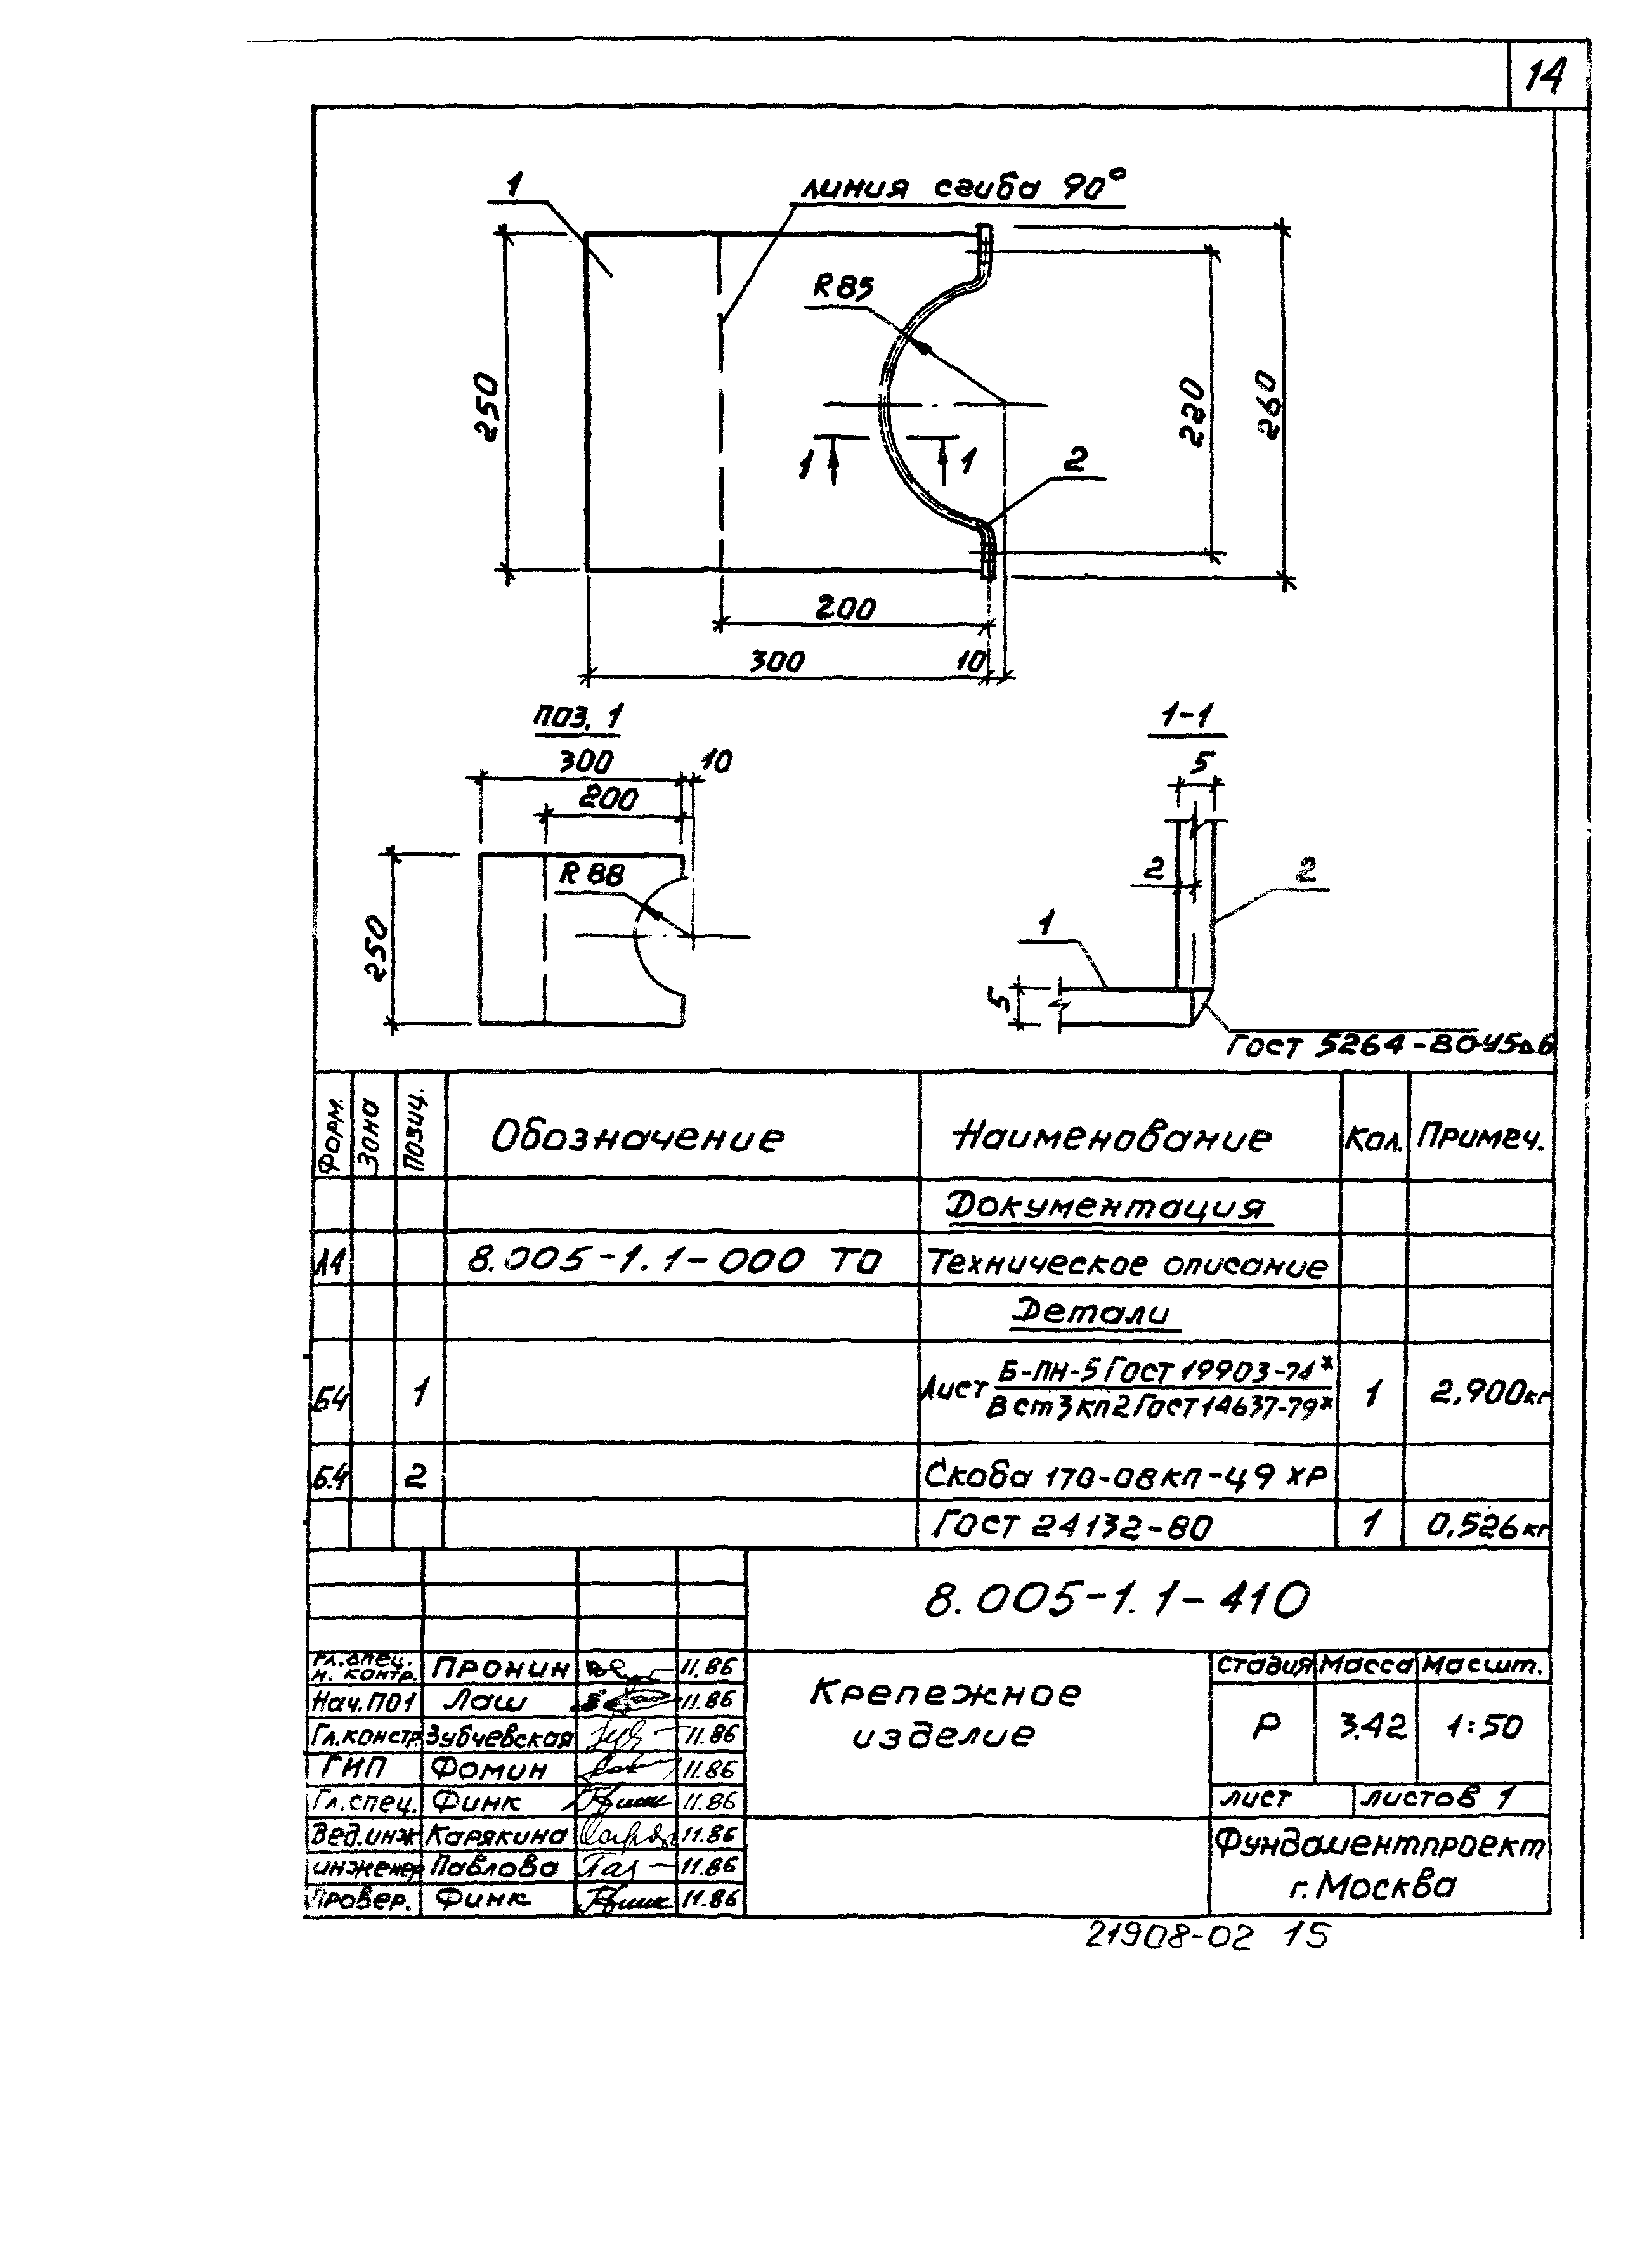 14
1
линия сгиба 90°
R 85
250
220
260
1 1
2
200
300 10
поз. 1
300 10
200
R 88
250
1-1
5
2
2
1
5
Гост 5264-80-У5-⊿6
Форм. Зона Позиц. Обозначение Наименование Кол. Примеч.
Документация
А4 8.005-1.1-000 ТО Техническое описание
Детали
Б4 1 Лист Б-ПН-5 Гост 19903-74* 1 2,900кг
В ст3кп2 Гост 14637-79*
Б4 2 Скоба 170-08кп-ц9 хр
Гост 24132-80 1 0,526кг
8.005-1.1-410
Гл. спец. н. контр. Пронин 11.86
Нач.ПО1 Лаш 11.86
Гл.констр Зубчевская 11.86
ГИП Фомин 11.86
Гл.спец. Финк 11.86
Вед.инж Карякина 11.86
инженер Павлова 11.86
Провер. Финк 11.86
Крепежное
изделие
Стадия Масса Масшт.
Р 3.42 1:50
лист листов 1
Фундаментпроект
г. Москва
21908-02 15